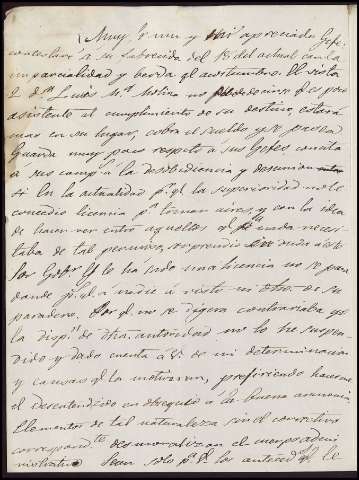 Muy Sr mio y mi apreciado Gefe:
contestaré á su favorecida del 18 del actual con la
imparcialidad y verdad qe acostumbro. El vista
2º Dn Luis Ma Molina no puede decirse qe es poco
asistente al cumplimiento de su destino, estará
mas en su lugar, cobra el sueldo y se pasea
Guarda muy poco respeto á sus Gefes concita
á sus compos á la desobediencia y desunion
si en la actualidad pr qe la superioridad no le
concedió licencia pa tomar aires, y con la idea
de hacer ver entre aquellos qe para nada necesi-
taba de tal permiso, sorprendió
Sor Gobor qe le ha dado una licencia no se para
donde pr qe á nadie á visto ni otro de su
paradero. Por qe no se digera contrariaba yo
la dispon de otra autoridad no lo he suspen-
dido y dado cuenta á V. de mi determinacion
y causas qe la motivaron, prefiriendo hacerme
el desentendido en obsequio á la buena armonia
Elementos de tal naturaleza sin el correctivo
correspondte desmoralizan el cuerpo admi-
nistrativo Sean solo pr los anteced qe le